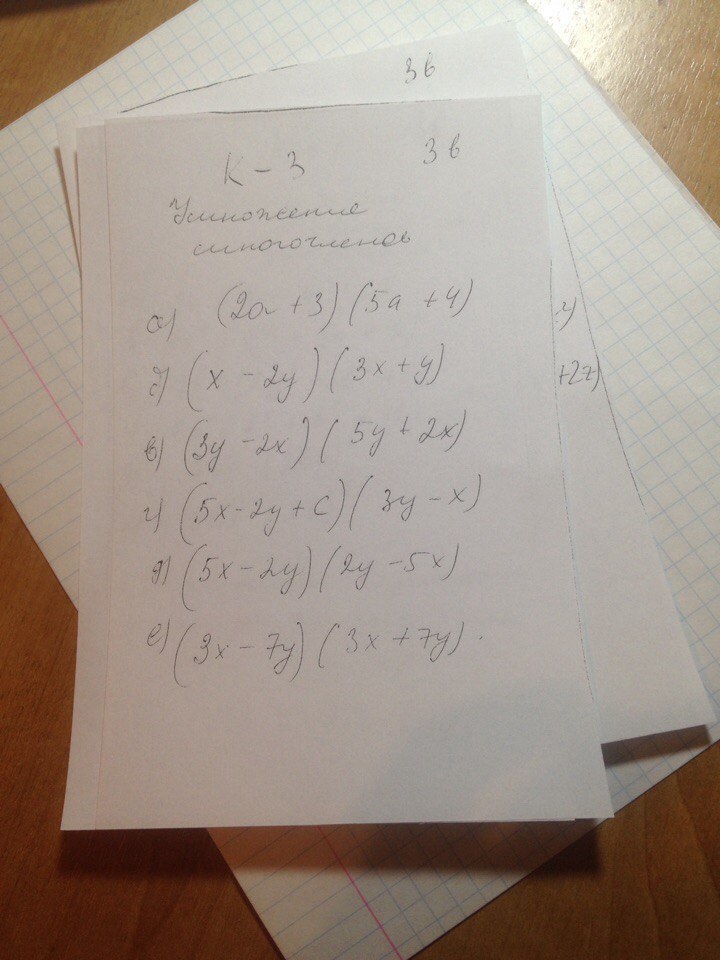 3 в
К – 3 3 в
Умножение
многочленов
а) (2a + 3)(5a + 4)
б) (x – 2y)(3x + y)
в) (3y – 2x)(5y + 2x)
г) (5x – 2y + c)(3y – x)
д) (5x – 2y)(2y – 5x)
е) (3x – 7y)(3x + 7y).
+2z)